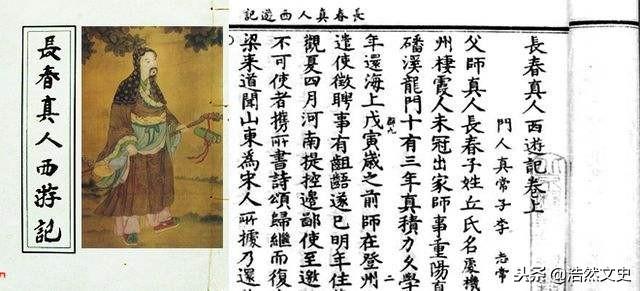 長春真人西游記
長春真人西遊記
長春真人西遊記卷上
門人真常子李 志常
父師真人長春子姓丘氏名處機
州棲霞人未冠出家師事重陽真
磻溪龍門十有三年真積力久學
年還海上戊寅歲之前師在登州
遣使徵聘事有齟齬遂已明年住
觀夏四月河南提控邊鄙使至邀
不可使者攜所書詩頌歸繼而復
梁來道聞山東為宋人所據乃還
二
头条 @浩然文史